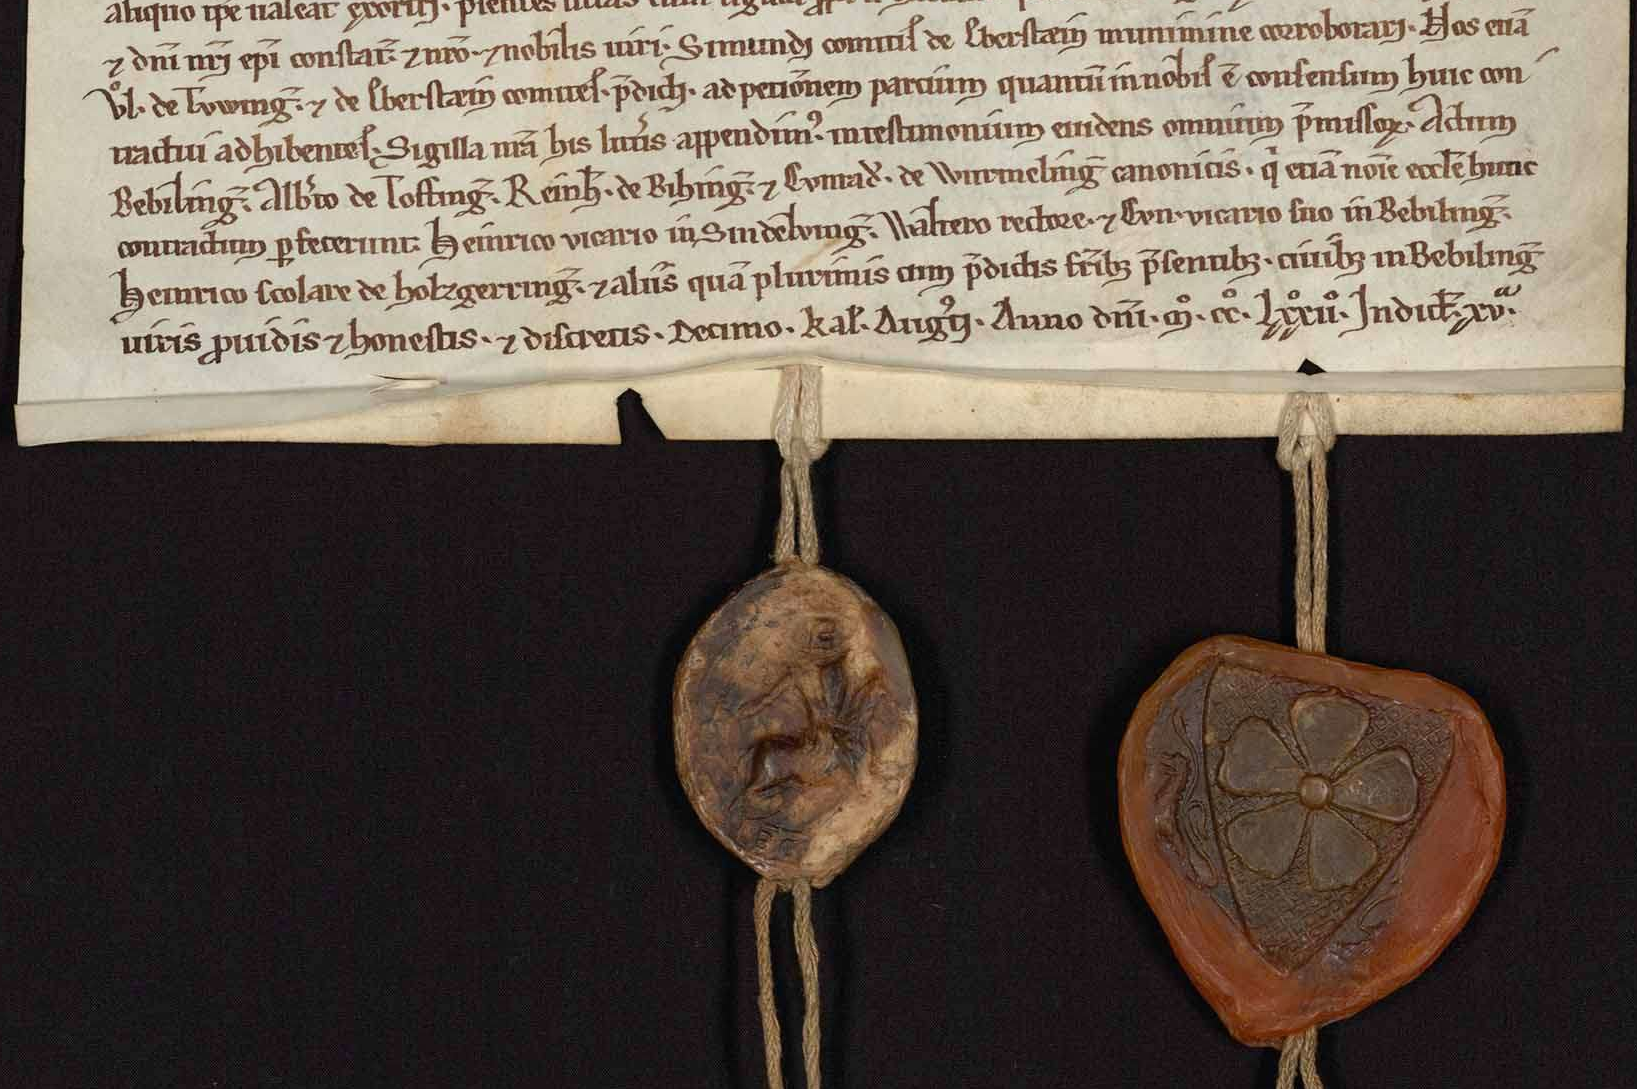 aliquo ipe ualeat exoriri. pͬsentes litt̄as
⁊ dn̄i nr̄i epi constan̄. ⁊ nr̄o. ⁊ nobilis uiri. Simundi comitis de Eberstein munimine corroborari. Hos etiā
Vͦl. de Tvwinḡ. ⁊ de Eberstein comites. p̄dicti. ad peticōnem parcium quantū in nobis ē consensum huic con
tractui adhibentes. Sigilla nr̄a his litt̄is appendim᷒. in testimonium euidens omnium p̄missoꝝ. Actum
Bebilinḡ. Alb̄to de Toffinḡ. Reinh̄. de Bihinḡ. ⁊ Cvnrad̄. de Wurmelinḡ canonicis. qͥ etiā noīe eccl̄e hunc
contractum ꝑfecerunt. Heinrico vicario in Sindelvinḡ. Waltero rectore. ⁊ Cvn. vicario suo in Bebilinḡ.
Heinrico scolare de holzgerrinḡ. ⁊ aliis quā plurimis cum p̄dictis fr̄ibꝫ p̄sentibꝫ. ciuibꝫ in Bebilinḡ
uiris ꝓuidis ⁊ honestis. ⁊ discretis. Decimo. kal̄. Augͧsti. Anno dn̄i. mͦ. ccͦ. Lxͦxiiͦ. Indict̄. xvͣ.